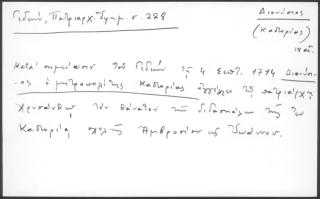 Γεδεών, Πατριαρχ. Εφημ. σ. 229
Διονύσιος
(Καστορίας)
18 αι.
Κατά σημείωσιν του Γεδεών τη 4 Σεπτ. 1714 Διονύσι-
ος ο μητροπολίτης Καστορίας αγγέλλει τω πατριάρχη
Χρυσάνθω τον θάνατον του διδασκάλου της εν
Καστορία σχολής Αμβροσίου ή Ιωάννου.